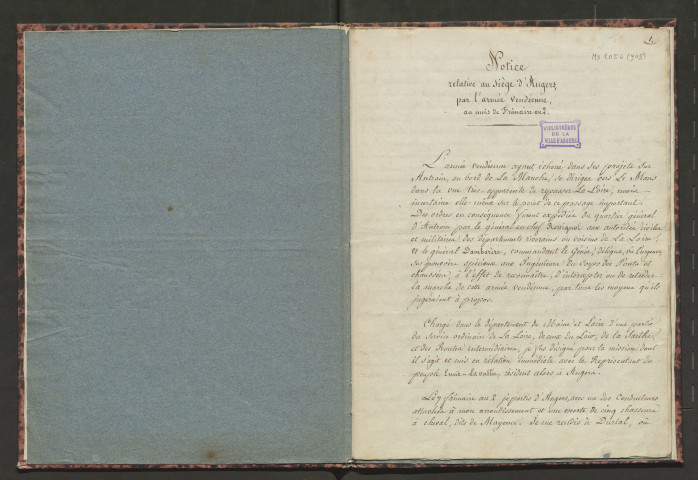 1
Ms 1026 (905)
Notice
relative au Siège d'Angers,
par l'armée vendéenne,
au mois de Frimaire an 2.
BIBLIOTHÈQUE
DE LA
VILLE D'ANGERS
L'armée vendéenne ayant échoué dans ses projets sur
Antrain, au bord de La Manche, se dirigea vers Le Mans
dans la vue très apparente de repasser La Loire, mais
incertaine elle même sur le point de ce passage important.
Des ordres en conséquence furent expédiés du quartier général
d'Antrain par le général en chef Rossignol aux autorités civiles
et militaires des départements riverains ou voisins de La Loire;
et le général Dambarère, commandant le Génie, délégua, vu l'urgence,
ses pouvoirs spéciaux aux Ingénieurs du corps des Ponts et
chaussées, à l'effet de reconnaître, d'intercepter ou de retarder
la marche de cette armée vendéenne, par tous les moyens qu'ils
jugeraient à propos.
Chargé dans le département de Maine et Loire d'une partie
du Service ordinaire de La Loire, de ceux du Loir, de la Sarthe,
et des Routes intermédiaires, je fus désigné pour la mission dont
il s'agit et mis en relation immédiate avec le Représentant du
peuple Enüe-Lavallée, résident alors à Angers.
Le 7 frimaire an 2 je partis d'Angers, avec un des Conducteurs
attachés à mon arrondissement et une escorte de cinq chasseurs
à cheval, dits de Mayence. Je me rendis de Durtal, où